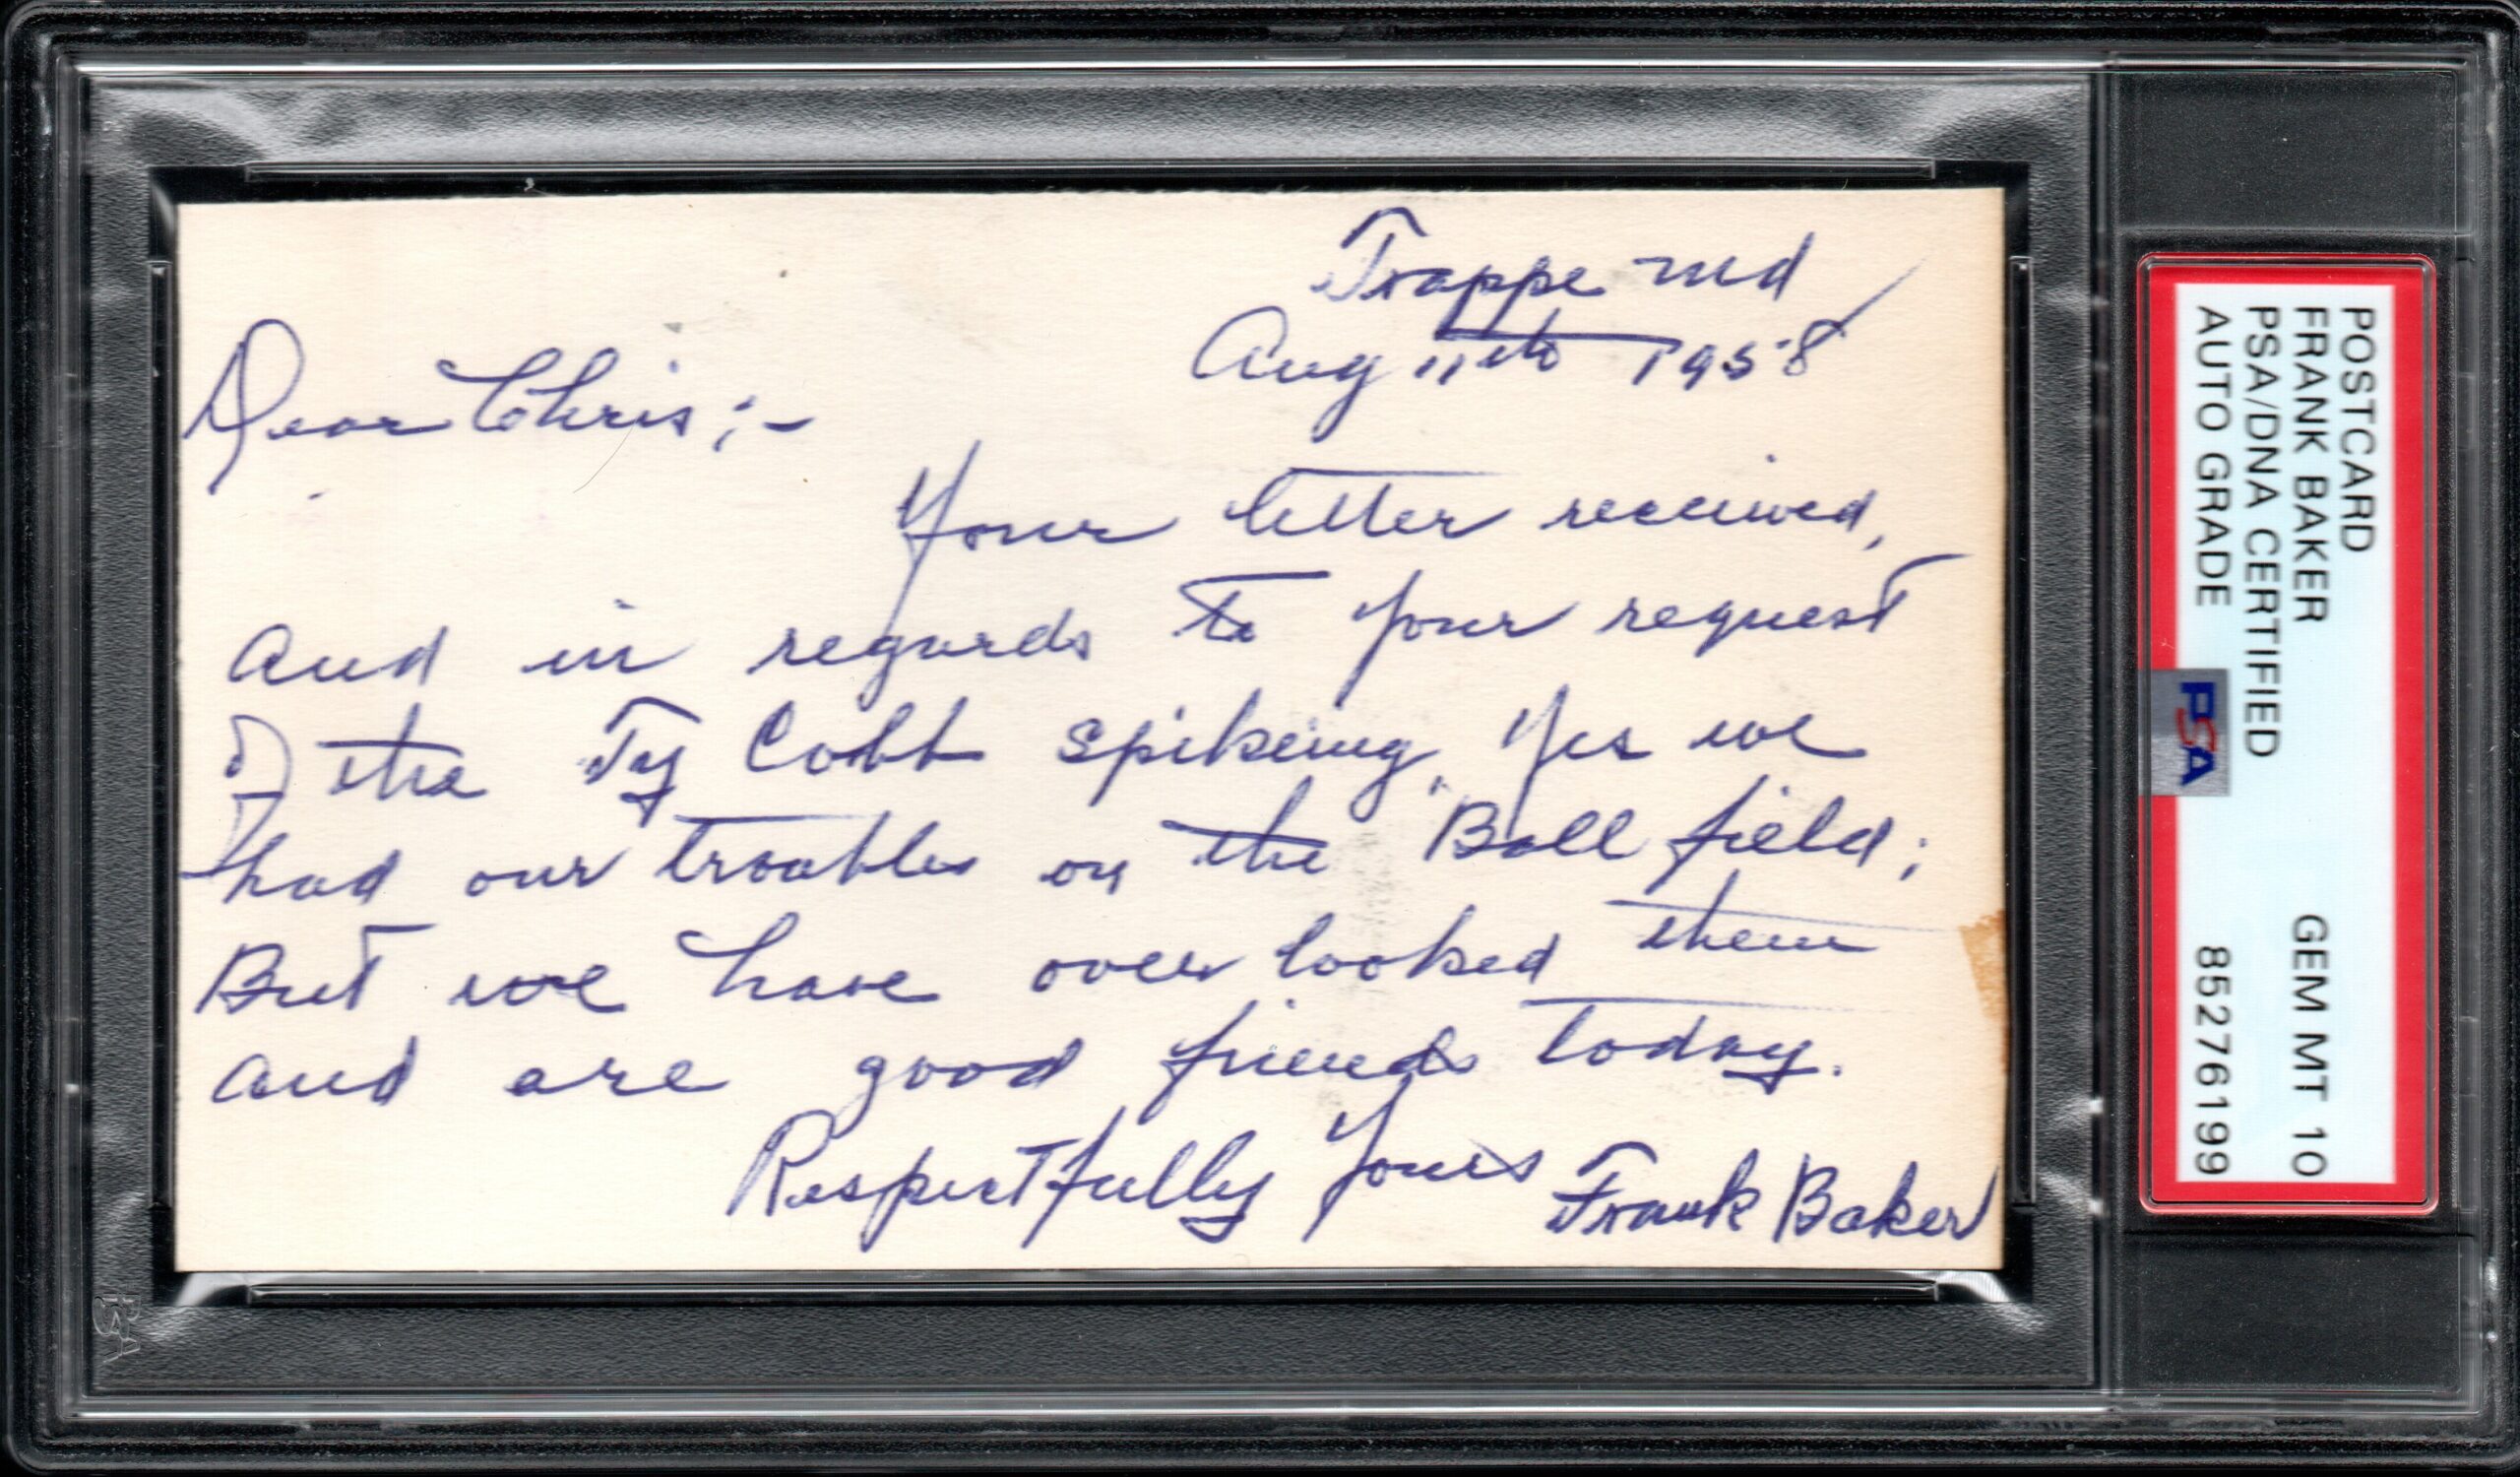 Trappe Md
Aug 11th 1958
Dear Chris;-
Your letter received,
and in regards to your request
of the Ty Cobb spikeing, Yes we
had our troubles on the Ball field;
But we have over looked them
and are good friends today.
Respectfully Yours Frank Baker
POSTCARD
FRANK BAKER GEM MT 10
PSA/DNA CERTIFIED
AUTO GRADE 85276199
PSA
PSA